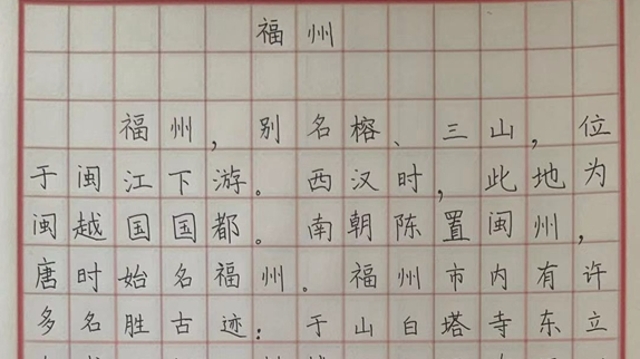 福州
福州，别名榕、三山，位
于闽江下游。西汉时，此地为
闽越国国都。南朝陈置闽州，
唐时始名福州。福州市内有许
多名胜古迹：于山白塔寺东立